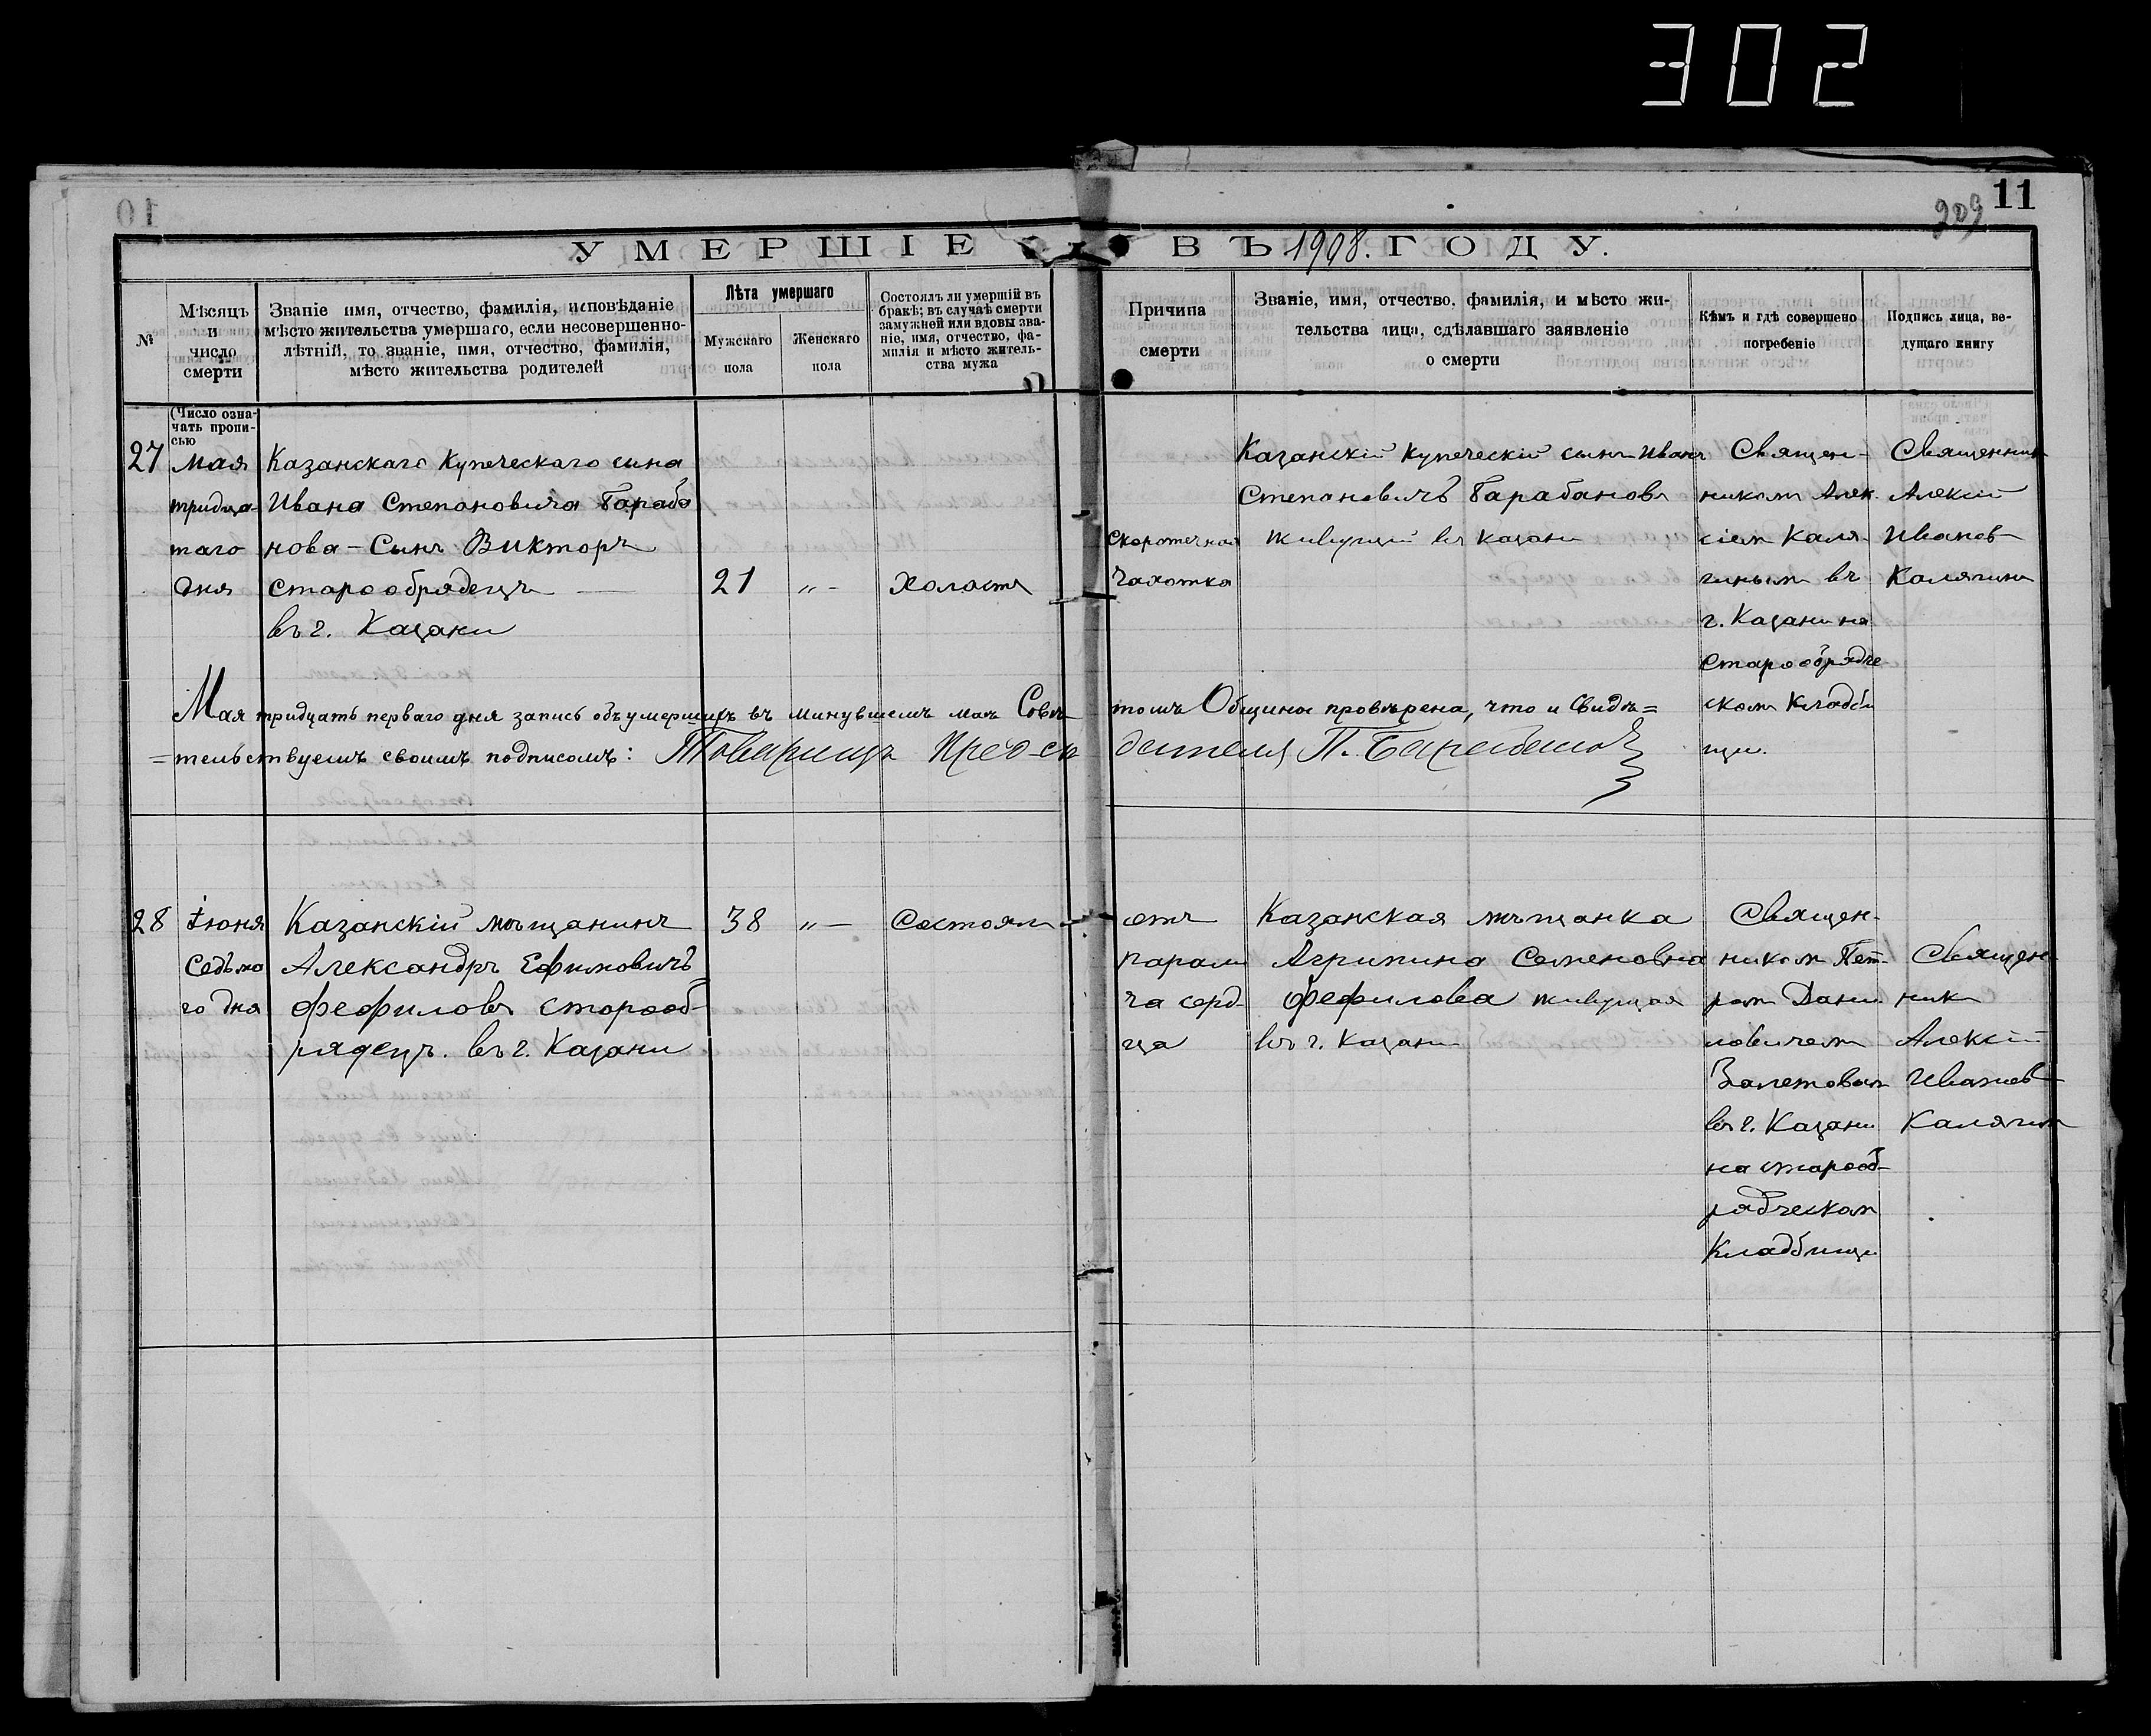 302
11
209
УМЕРШІЕ ВЪ 1908. ГОДУ.
№
Мѣсяцъ
и
число
смерти
Званіе имя, отчество, фамилія, исповѣданіе
мѣсто жительства умершаго, если несовершенно-
лѣтній, то званіе, имя, отчество, фамилія,
мѣсто жительства родителей
Лѣта умершаго
Мужскаго
пола
Женскаго
пола
Состоялъ ли умершій въ
бракѣ; въ случаѣ смерти
замужней или вдовы зва-
ніе, имя, отчество, фа-
милія и мѣсто житель-
ства мужа
Причина
смерти
Званіе, имя, отчество. фамилія, и мѣсто жи-
тельства лица, сдѣлавшаго заявленіе
о смерти
Кѣмъ и гдѣ совершено
погребеніе
Подпись лица, ве-
дущаго книгу
(Число озна-
чать пропи-
сью
27
мая
тридца-
таго
дня
Казанскаго Купеческаго сына
Ивана Степановича Бараба
нова - Сынъ Викторъ
старообрядецъ
въ г. Казани
21
„-
Холостъ
скоротечная
Чахотка
Казанскій Купеческій сынъ Иванъ
Степановичъ Барабановъ
живущій въ Казани
Священ-
никомъ Алек
сіем Каля-
гинымъ въ
г. Казани на
Старообрядче
скомъ Кладби
щи.
Священникъ
Алексій
Иванов
Калягинъ
Мая тридцать перваго дня запись объ умершихъ въ минувшемъ маѣ Совѣ-
томъ Общины провѣрена, что и Свидѣ=
=тельствуемъ своимъ подписомъ: Товарищъ Пред-сѣ
дателя П. Барабановъ
28
Іюня
Седьмо
го дня
Казанскій мѣщанинъ
Александръ Ефимовичъ
Фефиловъ старооб-
рядецъ. въ г. Казани
38
„-
Состоялъ
отъ
парали
ча серд-
ца
Казанская мѣщанка
Агрипина Семеновна
Фефилова живущая
въ г. Казани
Священ-
никомъ Пет-
ромъ Дани
ловичем
Залетовым
въ г. Казани
на старооб-
рядческом
Кладбищи
Священ-
никъ
Алексій
Иванов
Калягин